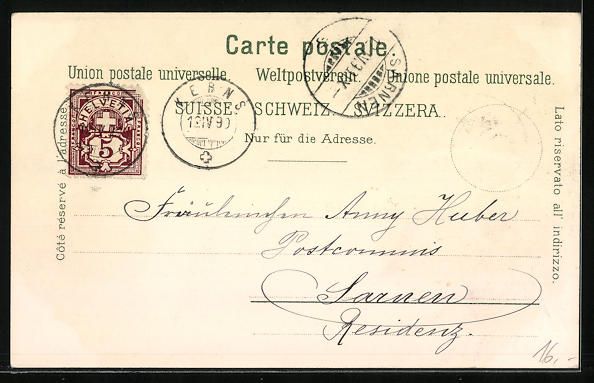 Carte postale.
Union postale universelle. Weltpostverein. Unione postale universale.
SUISSE. SCHWEIZ. SVIZZERA.
Nur für die Adresse.
Côté réservé à l'adresse.
Lato riservato all' indirizzo.
HELVETIA
5
KERNS
SARNEN
Fräulein Anny Huber
Postcommis
Sarnen
Residenz.
16,-